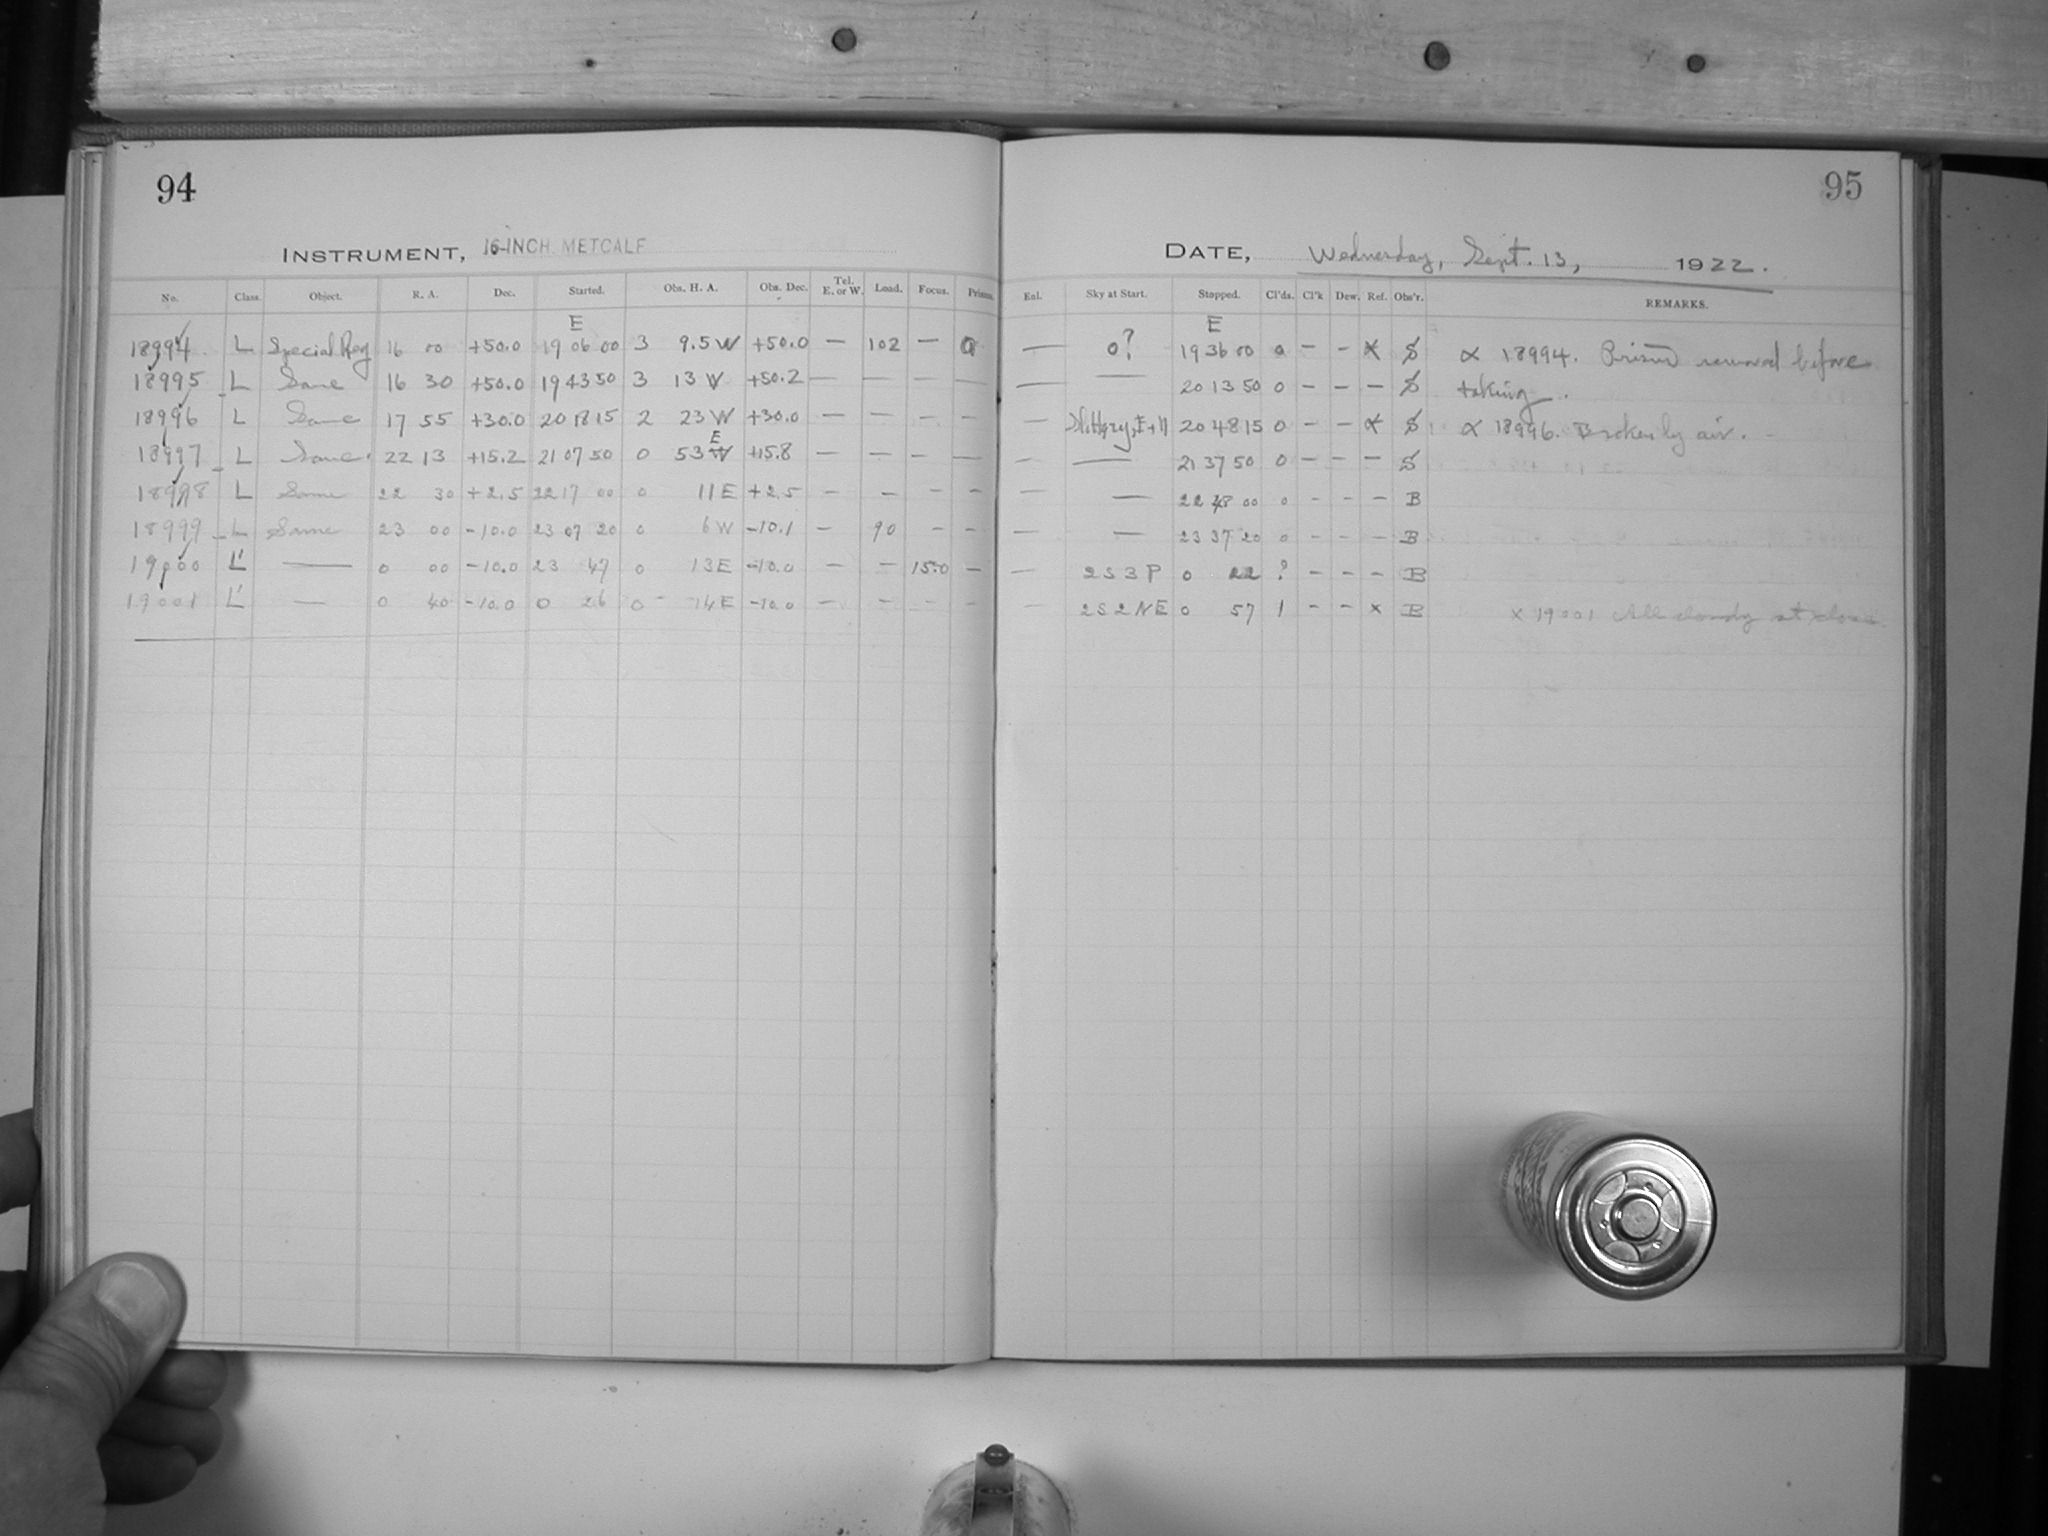 94
INSTRUMENT, 16-INCH METCALF
No. Class. Object. R. A. Dec. Started. Obs. H. A. Obs. Dec. Tel. E. or W. Load. Focus. Prisms.
E
18994 L Special Reg 16 00 +50.0 19 06 00 3 9.5 W +50.0 — 102 — 0
18995 L Same 16 30 +50.0 19 43 50 3 13 W +50.2 — — — —
18996 L Same 17 55 +30.0 20 18 15 2 23 W +30.0 — — — —
18997 L Same 22 13 +15.2 21 07 50 0 53 E +15.8 — — — —
18998 L Same 22 30 +2.5 22 17 00 0 11 E +2.5 — — — —
18999 L Same 23 00 -10.0 23 07 20 0 6 W -10.1 — 90 — —
19000 L' — 0 00 -10.0 23 47 0 13 E -10.0 — — 15.0 —
19001 L' — 0 40 -10.0 0 26 0 14 E -10.0 — — — —
95
DATE, Wednesday, Sept. 13, 1922.
Enl. Sky at Start. Stopped. Cl'ds. Cl'k Dew. Ref. Obs'r. REMARKS.
E
— 0? 19 36 00 0 — — × S ∝ 18994. Prism removed before
— — 20 13 50 0 — — — S taking.
— E+N 20 48 15 0 — — ∝ S ∝ 18996. air.
— — 21 37 50 0 — — — S
— — 22 48 00 0 - - — B
— — 23 37 20 0 - - — B
— 2 S 3 P 0 22 ? — — — B
— 2 S 2 NE 0 57 1 — — × B × 19001 All cloudy at close